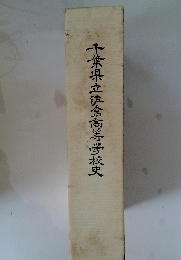 千葉県立佐倉高等学校史